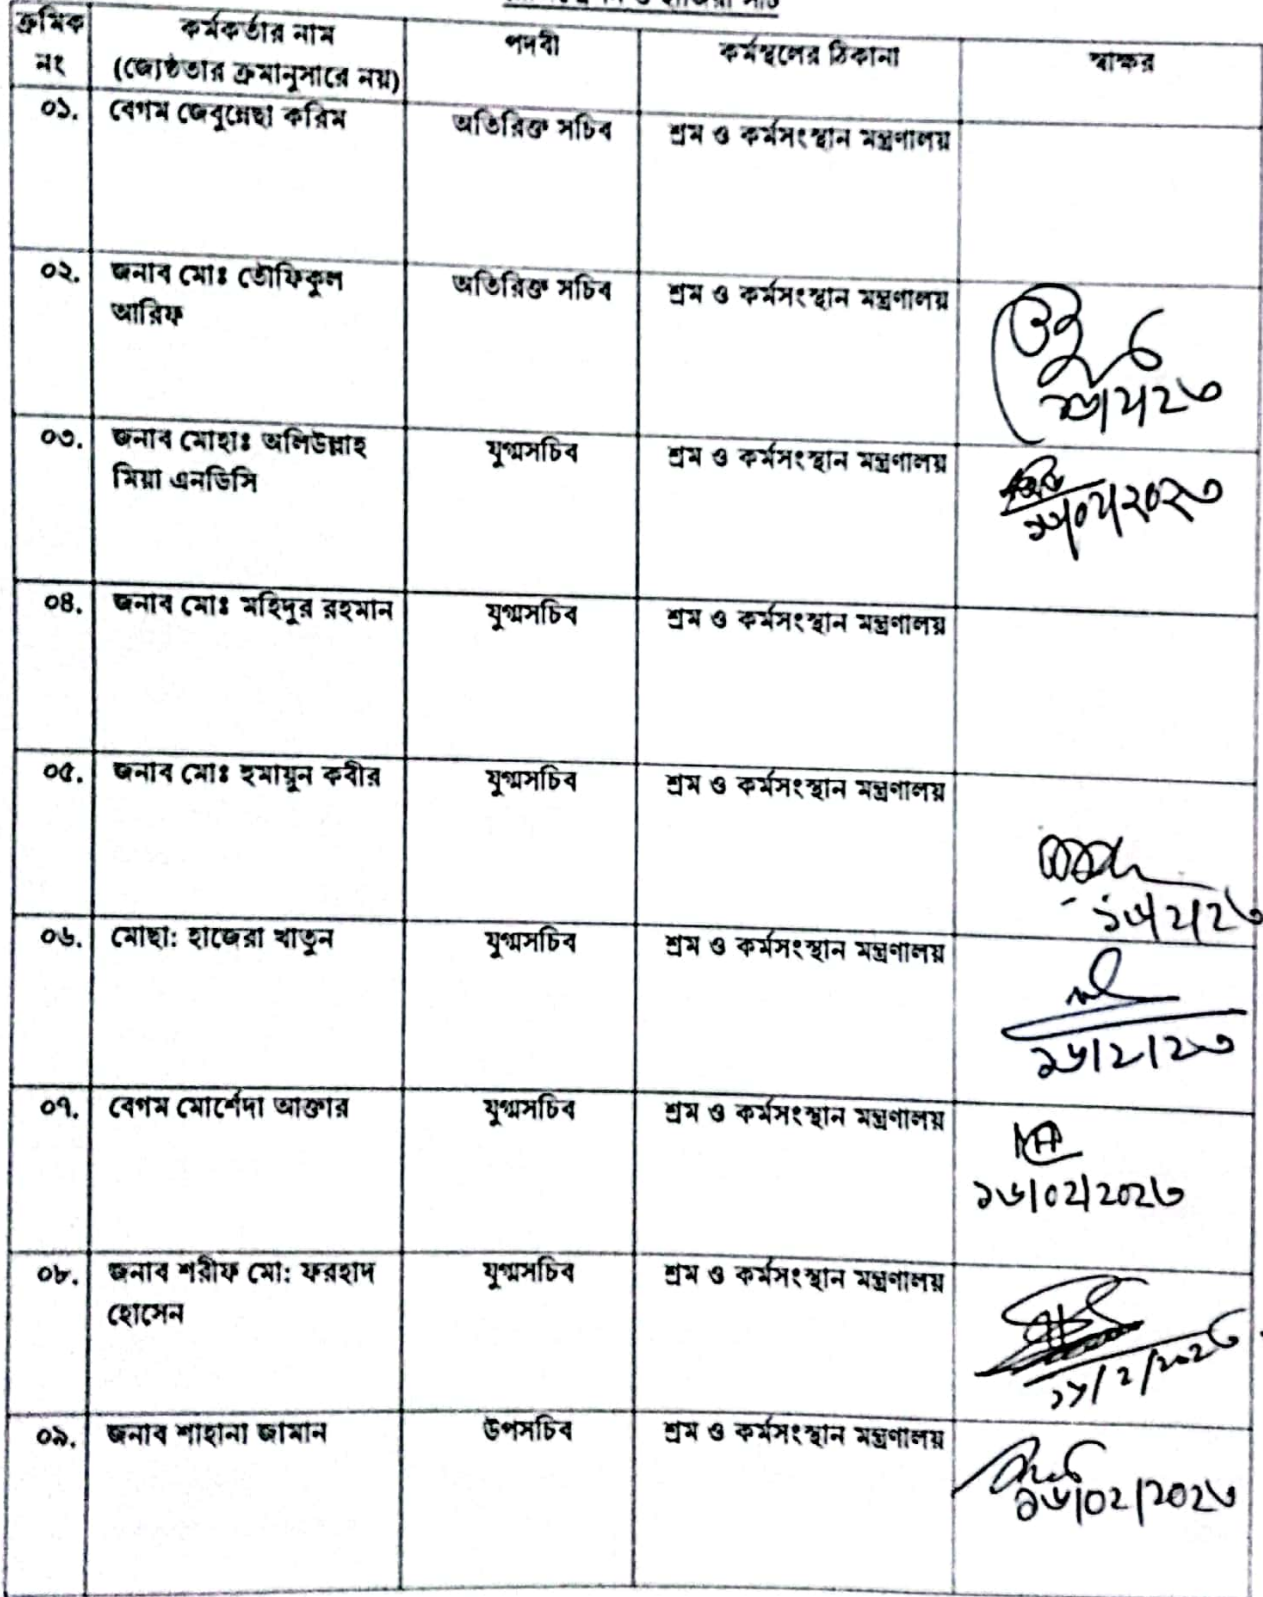 ক্রমিক নং কর্মকর্তার নাম (জ্যেষ্ঠতার ক্রমানুসারে নয়) পদবী কর্মস্থলের ঠিকানা স্বাক্ষর
০১. বেগম জেবুন্নেছা করিম অতিরিক্ত সচিব শ্রম ও কর্মসংস্থান মন্ত্রণালয়
০২. জনাব মোঃ তৌফিকুল অতিরিক্ত সচিব শ্রম ও কর্মসংস্থান মন্ত্রণালয়
আরিফ
০৩. জনাব মোহাঃ অলিউল্লাহ যুগ্মসচিব শ্রম ও কর্মসংস্থান মন্ত্রণালয়
মিয়া এনডিসি
০৪. জনাব মোঃ মহিদুর রহমান যুগ্মসচিব শ্রম ও কর্মসংস্থান মন্ত্রণালয়
০৫. জনাব মোঃ হুমায়ুন কবীর যুগ্মসচিব শ্রম ও কর্মসংস্থান মন্ত্রণালয়
০৬. মোছা: হাজেরা খাতুন যুগ্মসচিব শ্রম ও কর্মসংস্থান মন্ত্রণালয়
১৬/২/২৩
০৭. বেগম মোর্শেদা আক্তার যুগ্মসচিব শ্রম ও কর্মসংস্থান মন্ত্রণালয়
১৬/০২/২০২৩
০৮. জনাব শরীফ মো: ফরহাদ যুগ্মসচিব শ্রম ও কর্মসংস্থান মন্ত্রণালয়
হোসেন
০৯. জনাব শাহানা জামান উপসচিব শ্রম ও কর্মসংস্থান মন্ত্রণালয়
১৬/০২/২০২৩